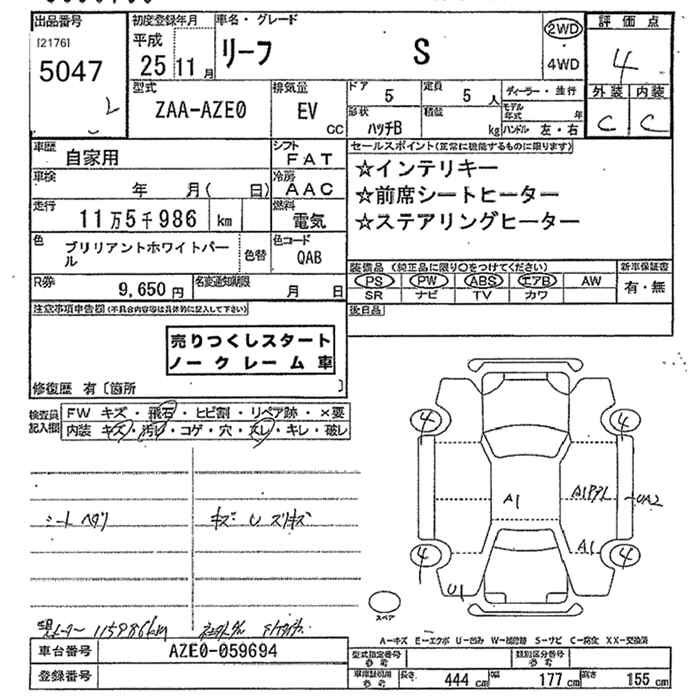 出品番号 初度登録年月 車名・グレード 評価点
[2176] 平成 リーフ S 2WD 4
5047 25 11月 4WD
型式 排気量 ドア 5 定員 5人 ディーラー・並行 外装 内装
ZAA-AZE0 EV cc 形状 ハッチB 積載 kg モデル年式 年 C C
ハンドル 左・右
車歴 自家用 シフト FAT セールスポイント(正常に機能するものに限ります)
車検 年 月( 日) 冷房 AAC ☆インテリキー
走行 11万5千986 km 燃料 電気 ☆前席シートヒーター
色 ブリリアントホワイトパール 色替 色コード QAB ☆ステアリングヒーター
装備品(純正品に限り○をつけてください) 新車保証書
PS PW ABS エアB AW 有・無
SR ナビ TV カワ
R券 9,650円 名変通知期限 月 日
後日品
注意事項申告欄(不具合内容等は具体的に記入して下さい)
売りつくしスタート
ノークレーム車
修復歴 有〔箇所 〕
検査員記入欄 FW キズ・飛石・ヒビ割・リペア跡・×要
内装 キズ・汚れ・コゲ・穴・スレ・キレ・破レ
4 4
A1 A1 UA2
シートヘタリ キズ U スリキズ
4 A1 4
U1
スペア
115986km
A-キズ E-エクボ U-凹み W-補修跡 S-サビ C-腐食 XX-交換済
車台番号 AZE0-059694 型式指定番号 参考 類別区分番号 参考
登録番号 車庫証明用 参考 長さ 444cm 幅 177cm 高さ 155cm